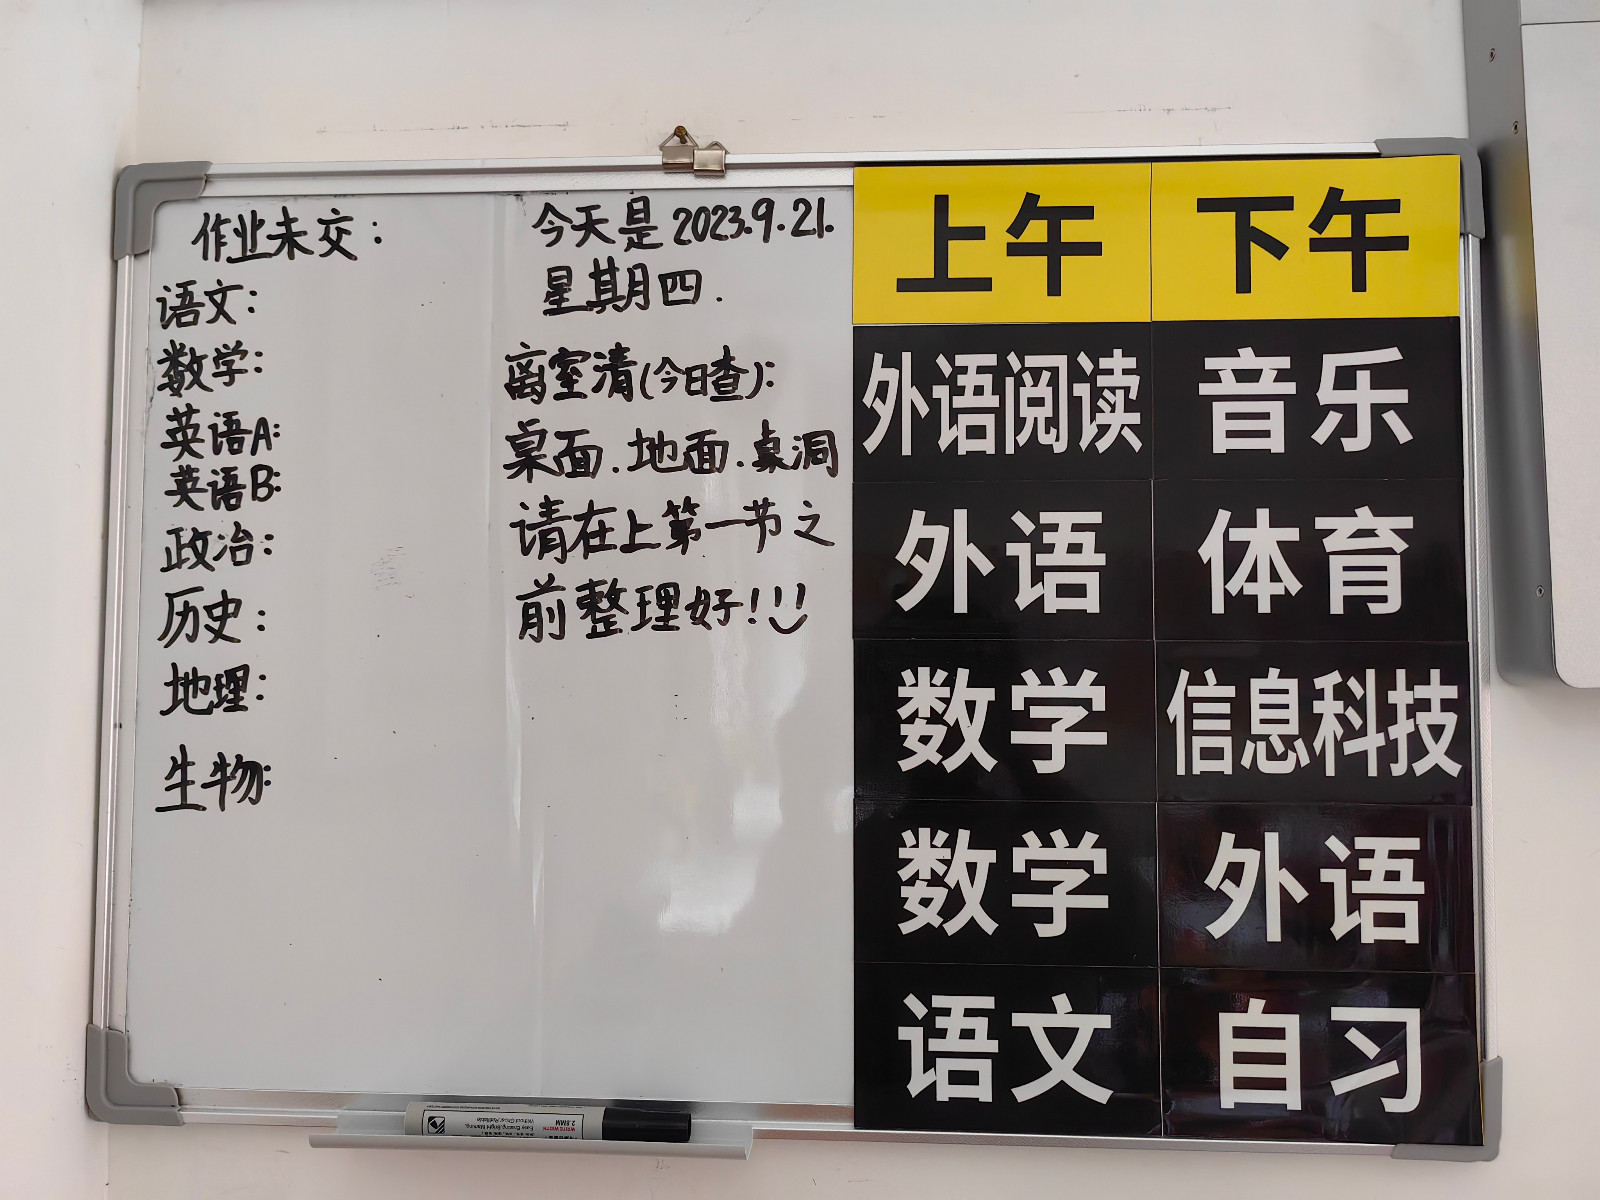 作业未交：
语文：
数学：
英语A：
英语B：
政治：
历史：
地理：
生物：
今天是2023.9.21.
星期四.
离室清(今日查)：
桌面.地面.桌洞
请在上第一节之
前整理好!!!
上午 下午
外语阅读 音乐
外语 体育
数学 信息科技
数学 外语
语文 自习
2.8MM